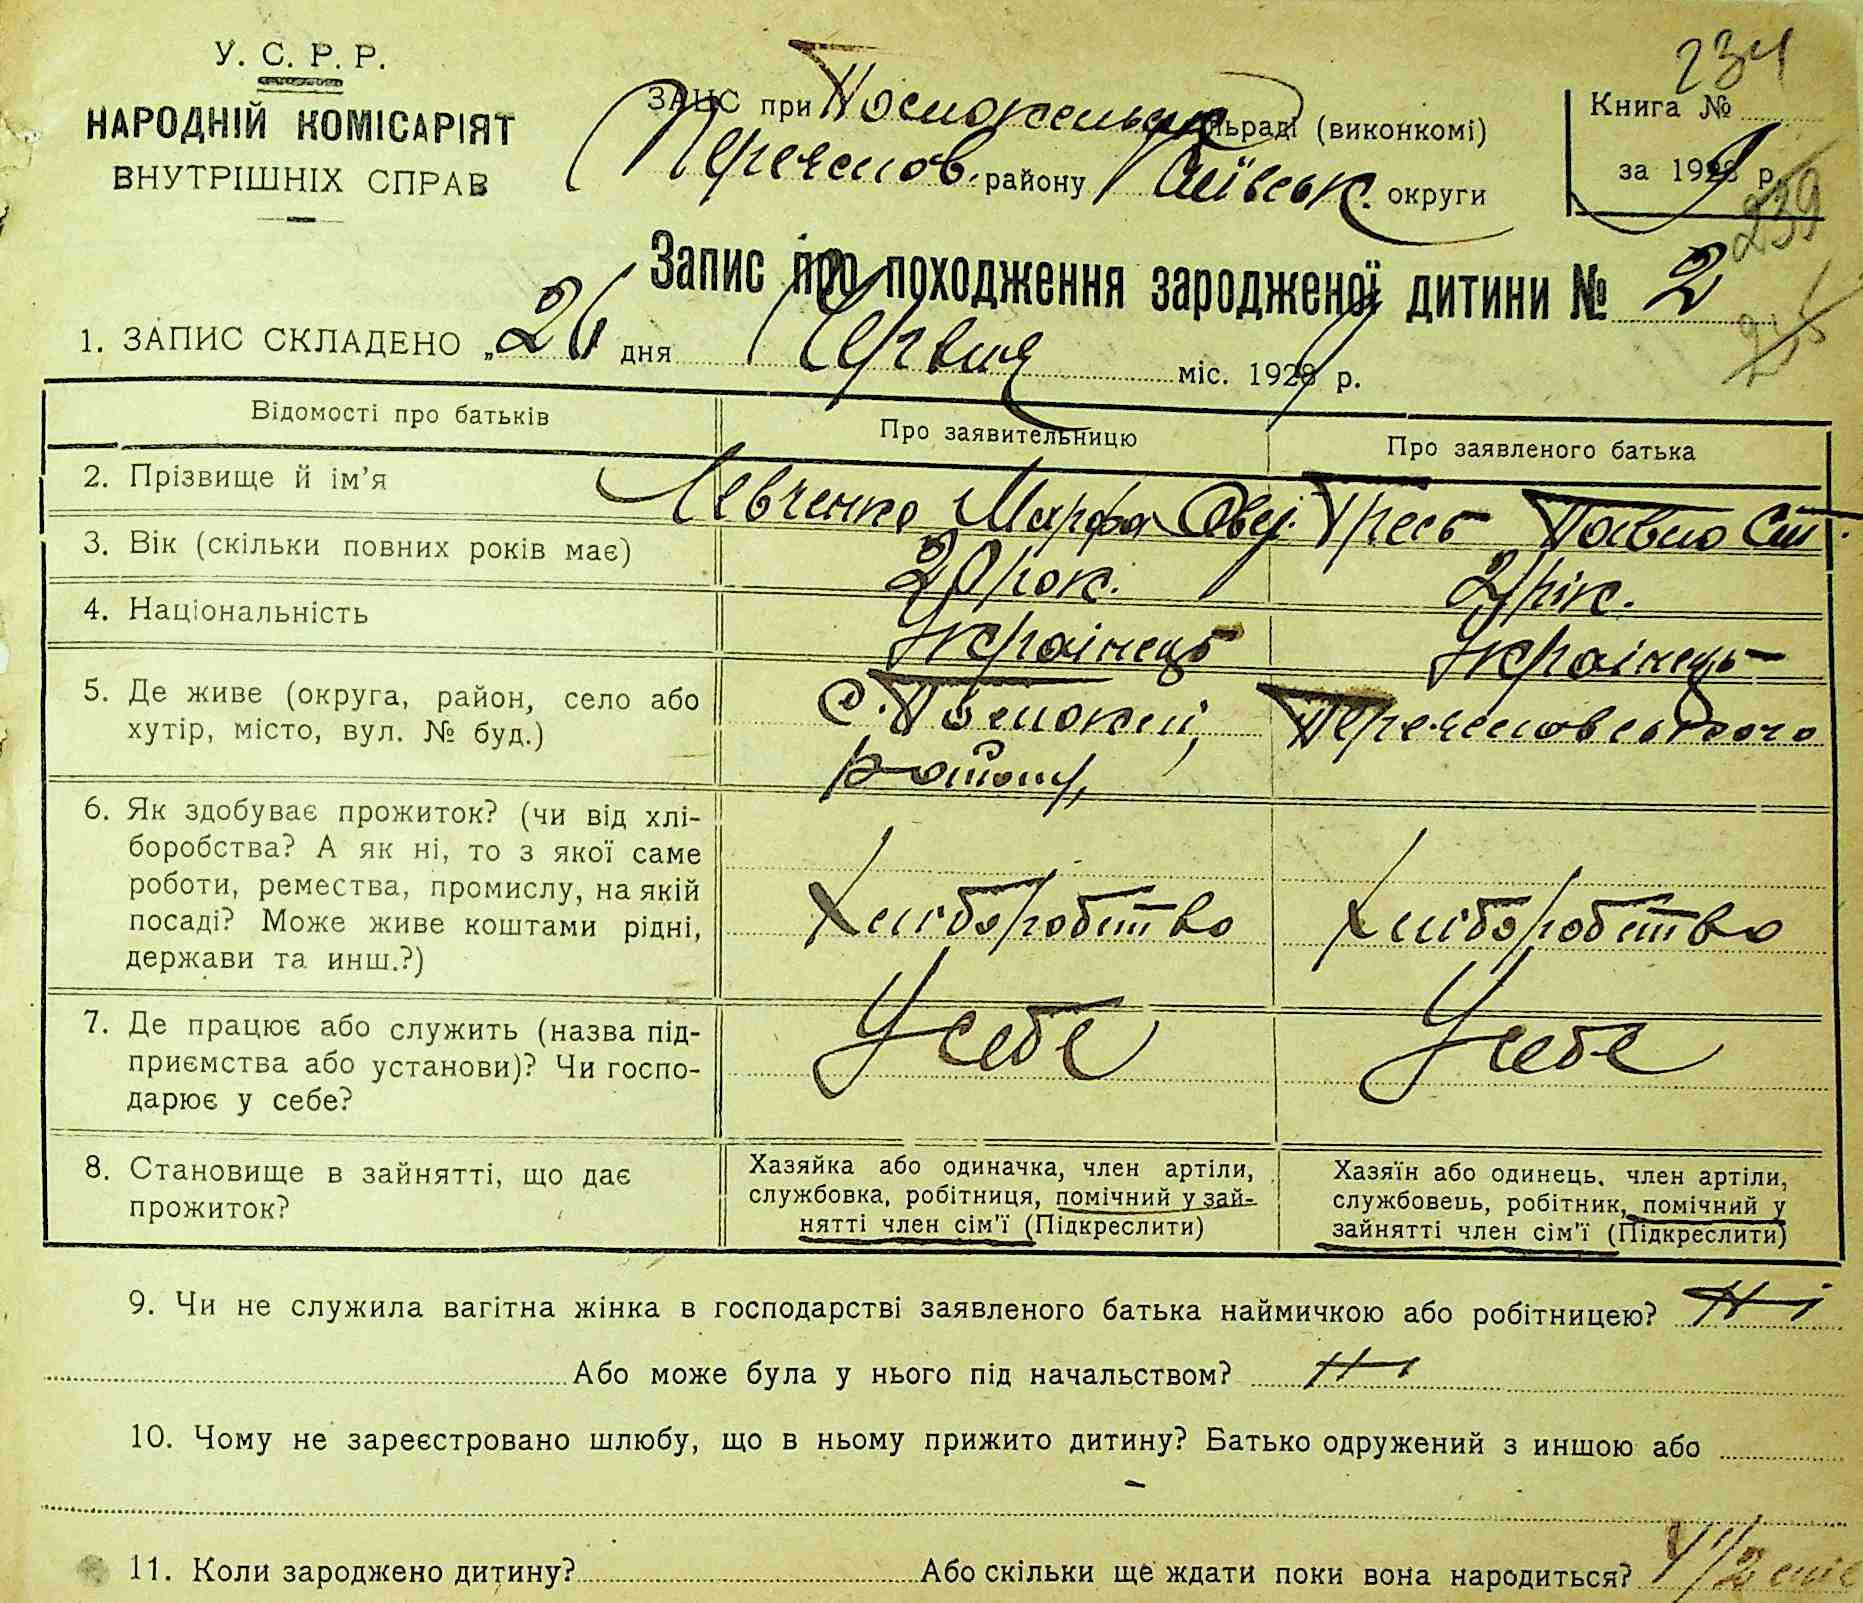 234
У. С. Р. Р.
НАРОДНІЙ КОМІСАРІЯТ
ВНУТРІШНІХ СПРАВ
ЗАГС при сільраді (виконкомі)
Переяслов. району Київськ. округи
Книга №
за 1929 р.
239
Запис про походження зародженої дитини № 2
1. ЗАПИС СКЛАДЕНО „26 дня Червня міс. 1929 р.
Відомості про батьків Про заявительницю Про заявленого батька
2. Прізвище й ім'я Левченко Марфа Овсі. Тресь Павло Ст.
3. Вік (скільки повних років має) 20 рок. 21 рік.
4. Національність Українець Українець
5. Де живе (округа, район, село або
хутір, місто, вул. № буд.)
с. Помоклі, Переясловського
району,
6. Як здобуває прожиток? (чи від хлі-
боробства? А як ні, то з якої саме
роботи, ремества, промислу, на якій
посаді? Може живе коштами рідні,
держави та инш.?)
Хліборобство Хліборобство
7. Де працює або служить (назва під-
приємства або установи)? Чи госпо-
дарює у себе?
У себе У себе
8. Становище в зайнятті, що дає
прожиток?
Хазяйка або одиначка, член артіли,
службовка, робітниця, помічний у зай-
нятті член сім'ї (Підкреслити)
Хазяїн або одинець, член артіли,
службовець, робітник, помічний у
зайнятті член сім'ї (Підкреслити)
9. Чи не служила вагітна жінка в господарстві заявленого батька наймичкою або робітницею? Ні
Або може була у нього під начальством? Ні
10. Чому не зареєстровано шлюбу, що в ньому прижито дитину? Батько одружений з иншою або
-
11. Коли зароджено дитину? Або скільки ще ждати поки вона народиться? 4 1/2 міс